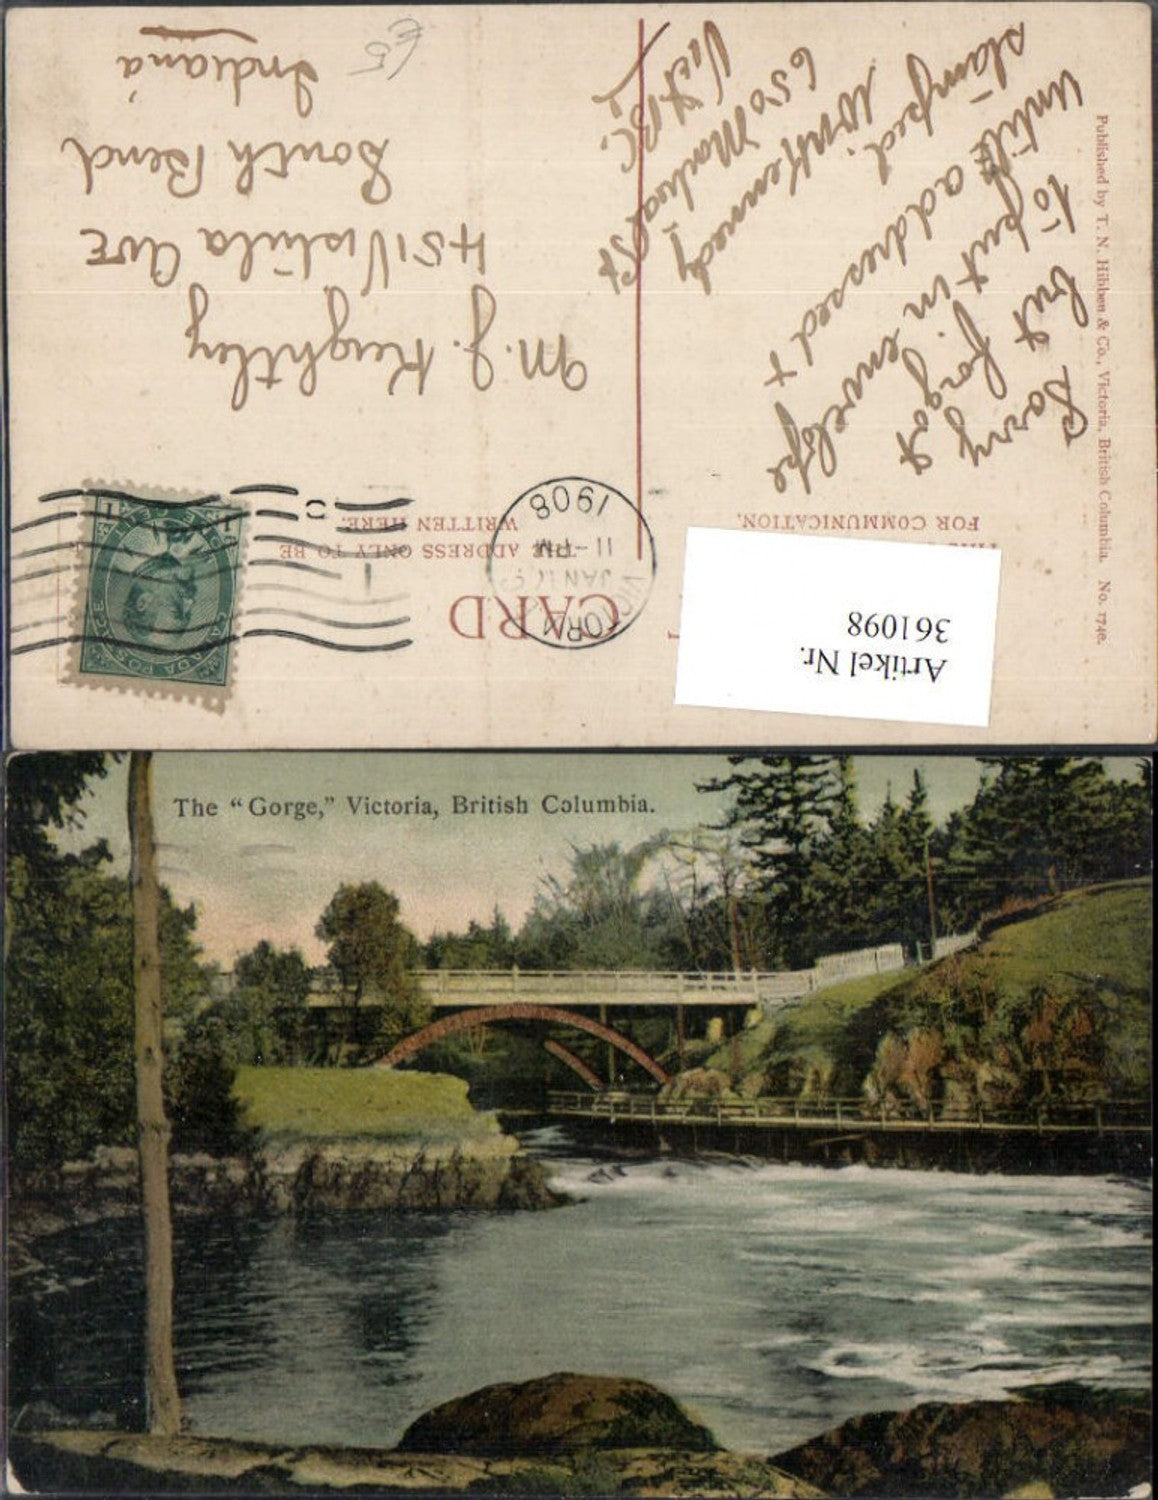 Sorry
but forgot
to put in envelope
until addressed +
stamped.
Kennedy
650
Vict. B.C.
M. J. Keightley
451 Vistula Ave
South Bend
Indiana
£5
CARD
FOR COMMUNICATION.
THE ADDRESS ONLY TO BE
WRITTEN HERE.
VICTORIA
JAN
11-PM
1908
C
1
1
CANADA POSTAGE
Published by T. N. Hibben & Co., Victoria, British Columbia. No. 174e.
Artikel Nr.
361098
The "Gorge," Victoria, British Columbia.